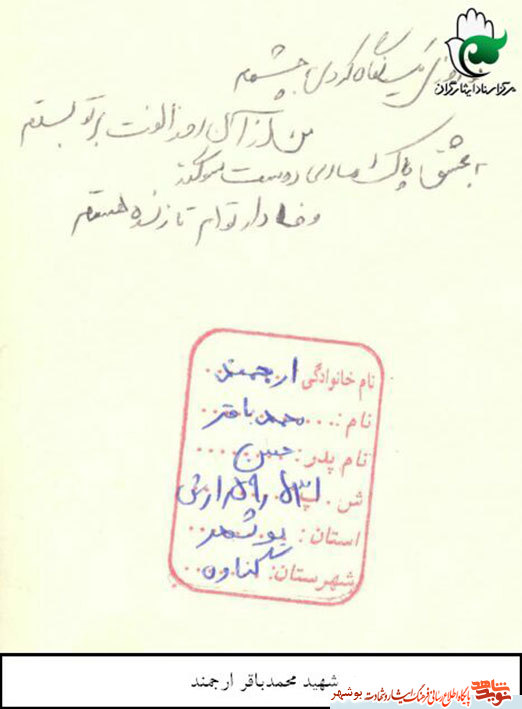 مرکز اسناد ایثارگران
روزی که نگاه کردی به چشمم
من از آن روز الفت بر تو بستم
به عشق پاک دوست سوگند
وفادار توام تا زنده هستم
نام خانوادگی: ارجمند
نام: محمد باقر
نام پدر: حسن
ش. پ ارتش
استان: بوشهر
شهرستان: گناوه
شهید محمدباقر ارجمند
نوید شاهد پایگاه اطلاع رسانی فرهنگ ایثار و شهادت بوشهر